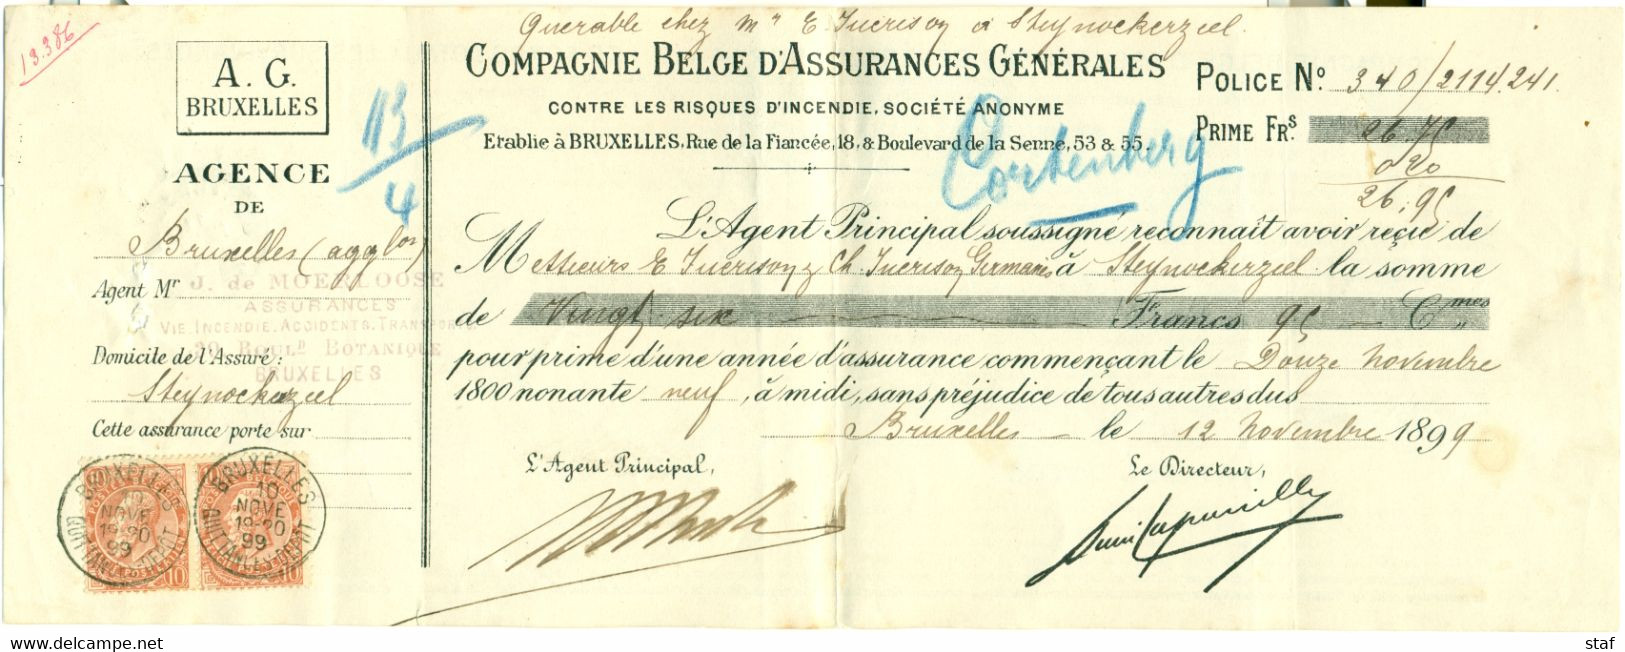 13.386
A. G.
BRUXELLES
AGENCE
DE
Bruxelles (agglon)
Agent Mr J. de MOERLOOSE
ASSURANCES
VIE. INCENDIE. ACCIDENTS. TRANSPORTS
39 BOULD BOTANIQUE
Domicile de l'Assuré:
BRUXELLES
Steynockerzeel
Cette assurance porte sur
BRUXELLES
10
NOVE
19-20
99
QUITTANCES-DEPOT
BRUXELLES
10
NOVE
19-20
99
QUITTANCES-DEPOT
10
10
113/4
Querable chez Mr E. à Steynockerzeel.
COMPAGNIE BELGE D'ASSURANCES GÉNÉRALES
CONTRE LES RISQUES D'INCENDIE, SOCIÉTÉ ANONYME
Etablie à BRUXELLES, Rue de la Fiancée, 18, & Boulevard de la Senne, 53 & 55.
Cortenberg
POLICE No. 340/2114.241.
PRIME FRS 26.75
0 20
26.95
L'Agent Principal soussigné reconnaît avoir reçu de
Messieurs E & Ch. à Steynockerzeel la somme
de Vingt six Francs 95 Cmes
pour prime d'une année d'assurance commençant le Douze novembre
1800 nonante neuf, à midi, sans préjudice de tous autres dus
Bruxelles le 12 Novembre 1899
L'Agent Principal,
Le Directeur,
staf